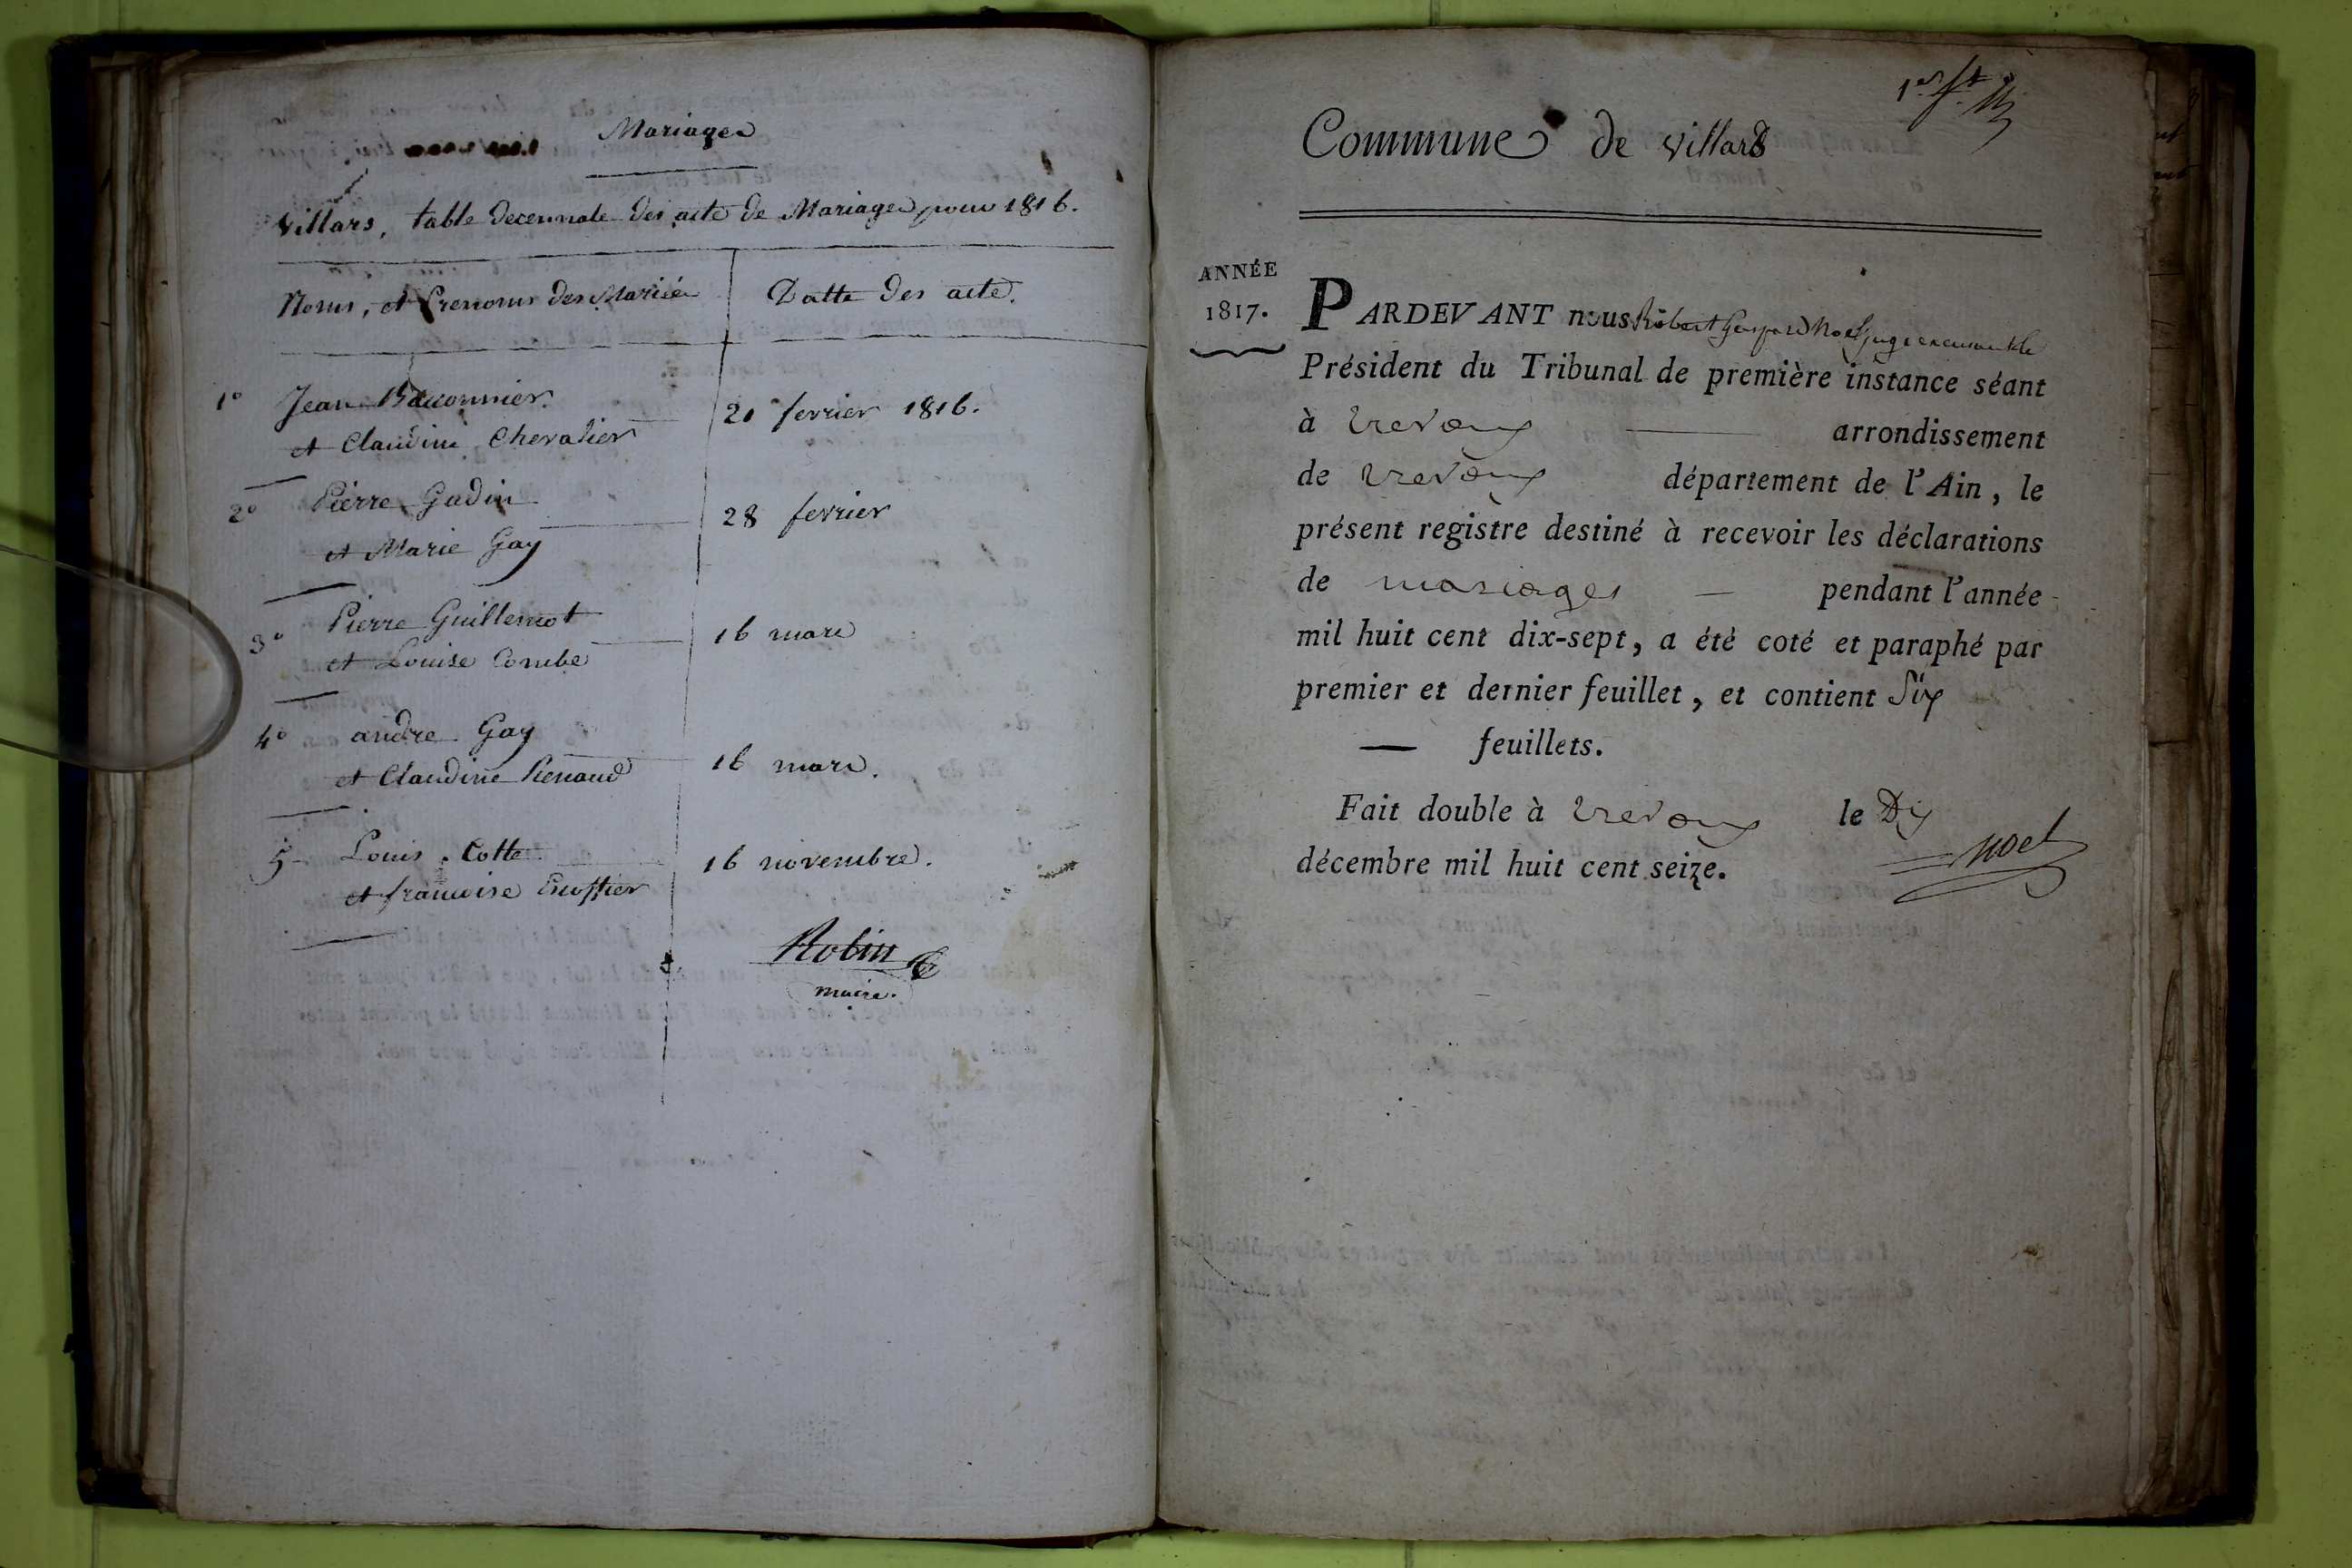 Mariages
Villars, table decennale des acte de Mariages pour 1816.
Noms, et Prenoms des Mariés
Datte des acte.
1° Jean Baconnier
et Claudine Chevalier
20 fevrier 1816.
2° Pierre Gadin
et Marie Gay
28 fevrier
3° Pierre Guillemot
et Louise Combe
16 mars
4° andre Gay
et Claudine Renaud
16 mars.
5 Louis Cotte
et francoise Escoffier
16 novembre.
Robin
maire.
1er ft
Commune de Villars
ANNÉE
1817.
PARDEVANT nous Robert Gaspard Noel juge
Président du Tribunal de première instance séant
à Trevoux arrondissement
de Trevoux département de l'Ain, le
présent registre destiné à recevoir les déclarations
de mariages pendant l'année
mil huit cent dix-sept, a été coté et paraphé par
premier et dernier feuillet, et contient Six
feuillets.
Fait double à Trevoux le Dix
décembre mil huit cent seize.
Noel